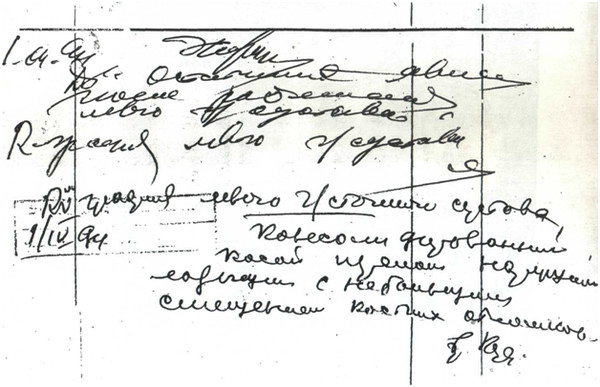 1.IV.94 Хирург
DS: остаточные явления
после
левого г/сустава
R-графия левого г/сустава
графия левого г/стопного сустава,
1/IV 94 Консолидированный
косой перелом наружной
лодыжки с небольшим
смещением костных отломков.